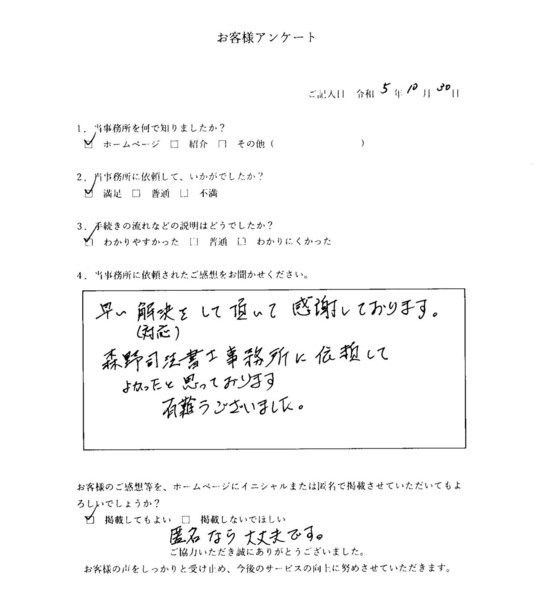 お客様アンケート
ご記入日 令和 5 年 10 月 30 日
1．当事務所を何で知りましたか？
☑ ホームページ □ 紹介 □ その他（ ）
2．当事務所に依頼して、いかがでしたか？
☑ 満足 □ 普通 □ 不満
3．手続きの流れなどの説明はどうでしたか？
☑ わかりやすかった □ 普通 □ わかりにくかった
4．当事務所に依頼されたご感想をお聞かせください。
早い 解決をして頂いて 感謝しております。
（対応）
森野司法書士事務所に依頼して
よかったと思っております
有難うございました。
お客様のご感想等を、ホームページにイニシャルまたは匿名で掲載させていただいてもよ
ろしいでしょうか？
☑ 掲載してもよい □ 掲載しないでほしい
匿名なら大丈夫です。
ご協力いただき誠にありがとうございました。
お客様の声をしっかりと受け止め、今後のサービスの向上に努めさせていただきます。